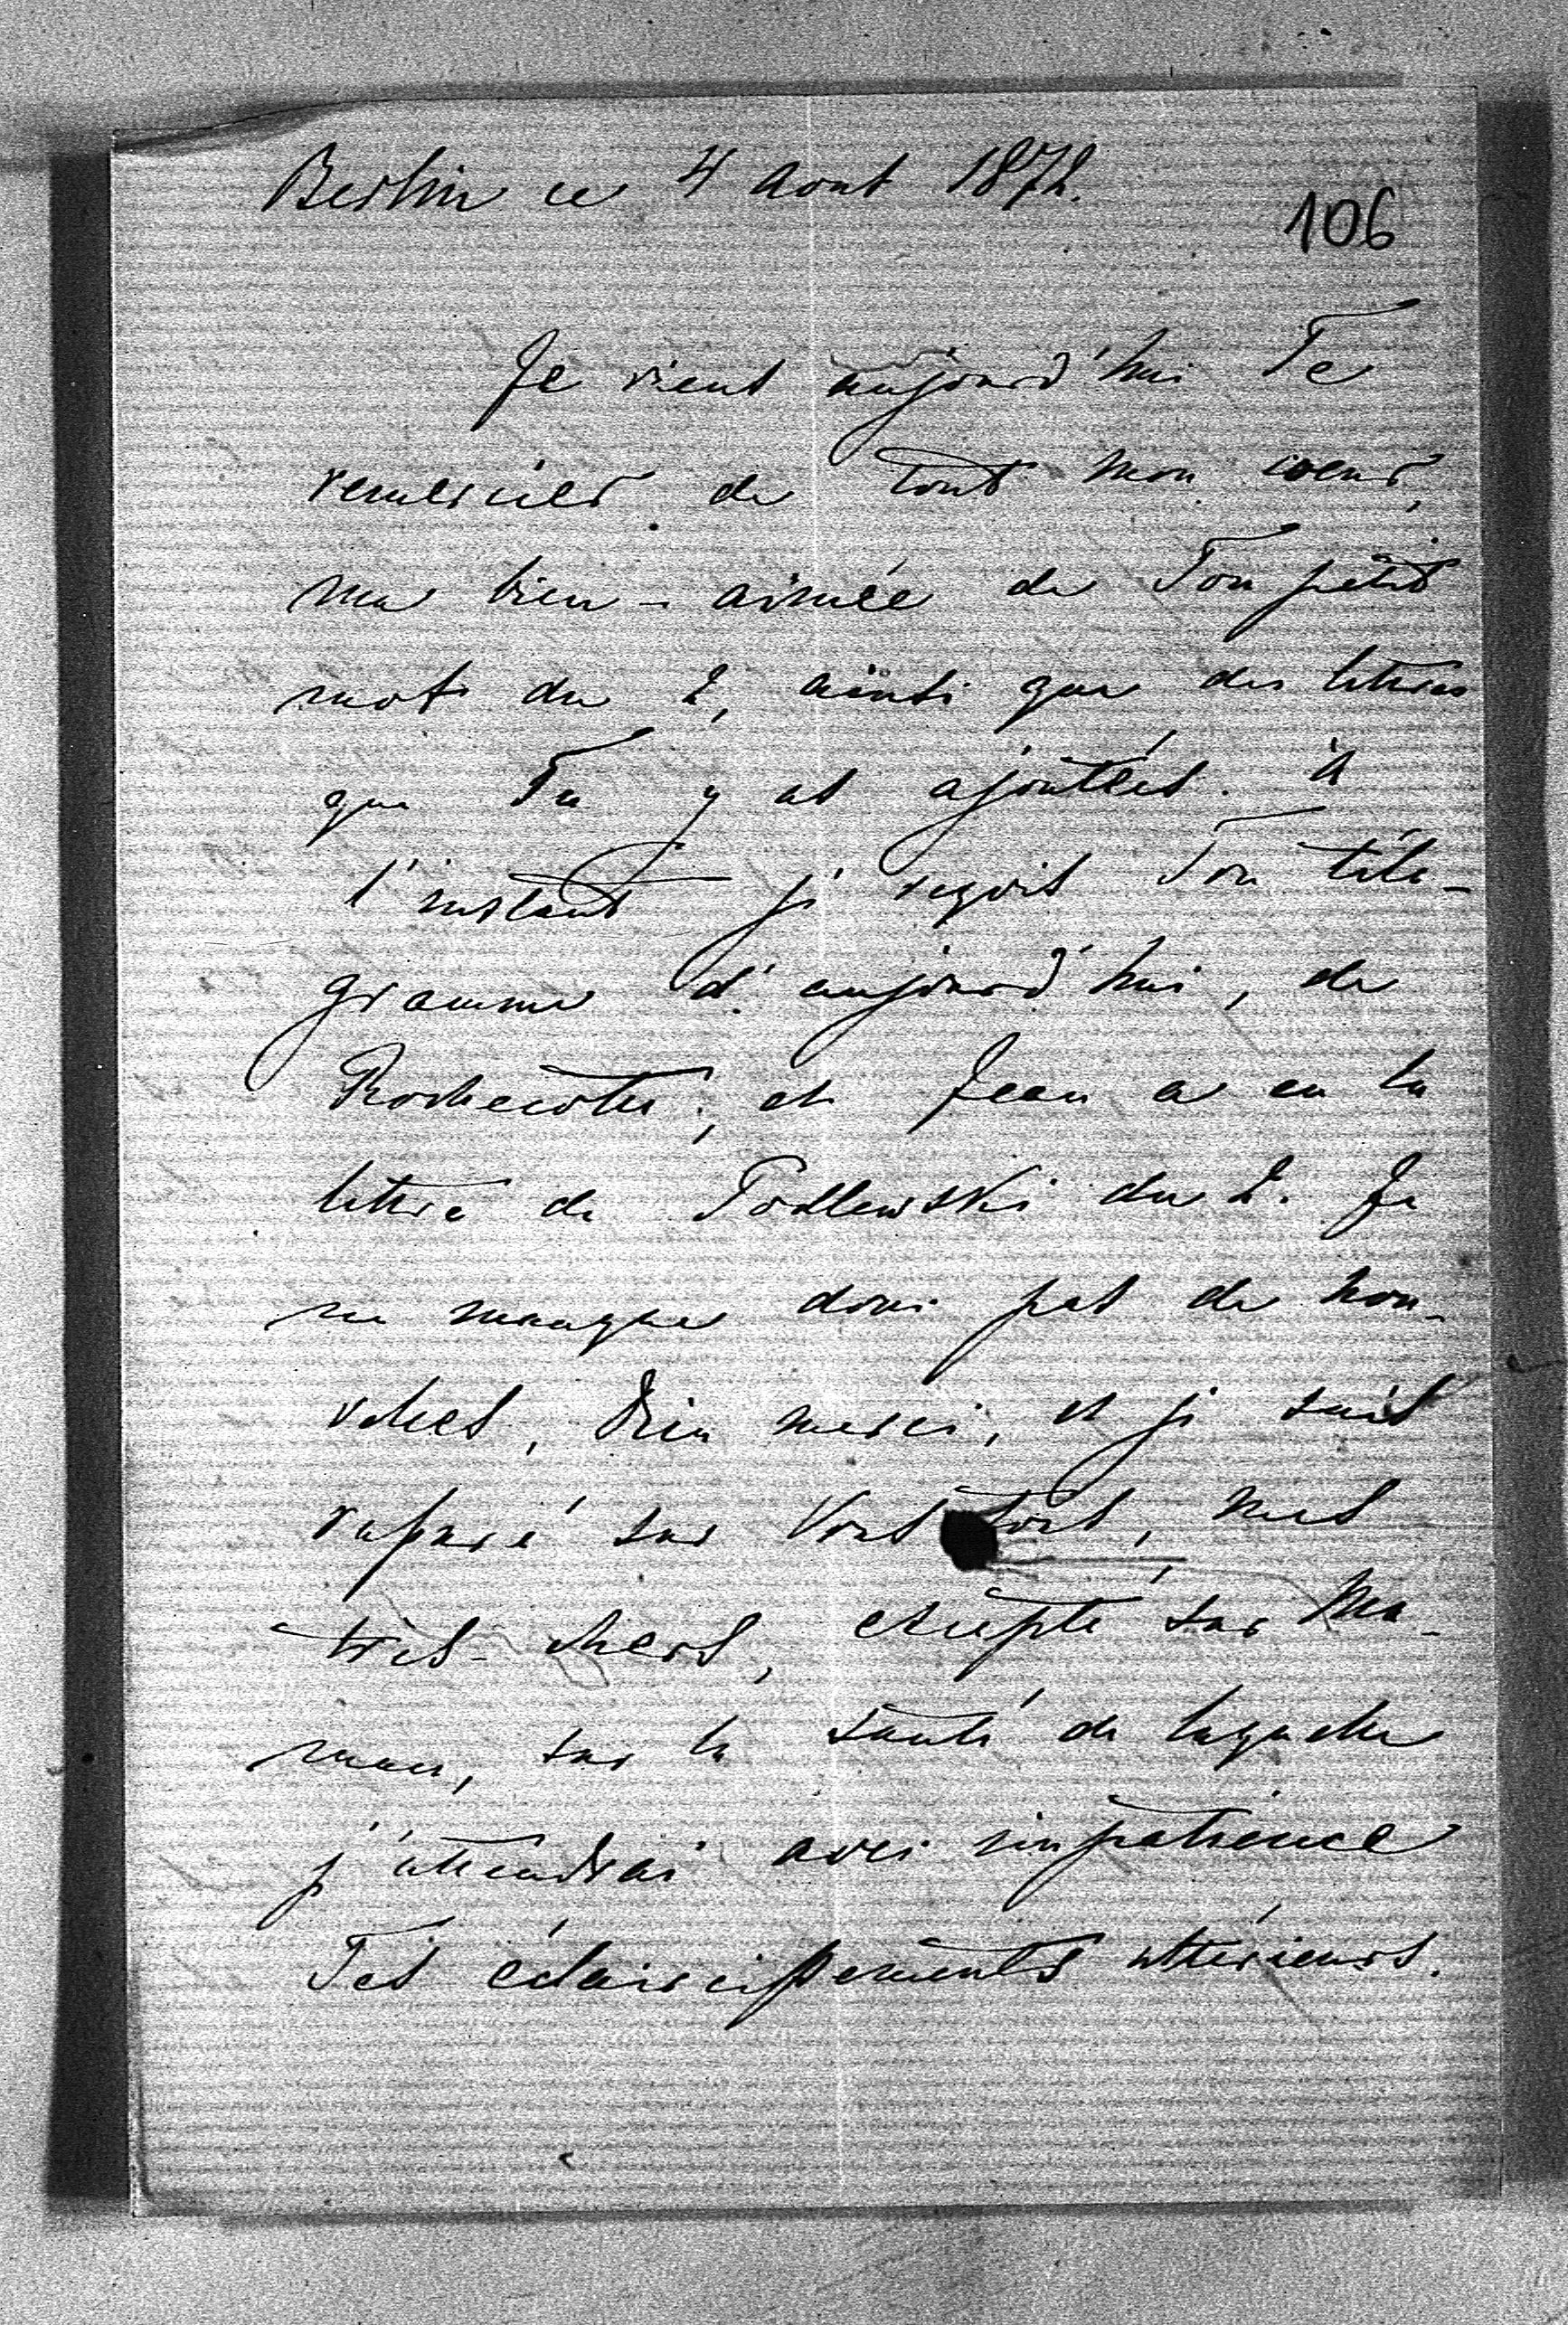 Berlin ce 4 Aout 1872.
106
Je viens aujourd'hui Te
remercier de tout mon coeur,
ma bien-aimée de Ton petit
mot du 2, ainsi que des lettres
que Tu y as ajoutées. à
l'instant je reçois Ton télé-
gramme d'aujourd'hui, de
Rochecotte, et Jean a eu la
lettre de Podlewski du 2. Je
ne manque donc pas de nou-
velles, Dieu merci, et je suis
rassuré sur Vous tous, mes
très-chers, excepté sur Ma-
man, sur la santé de laquelle
j'attendrai avec impatience
Tes éclaircissements ultérieurs.